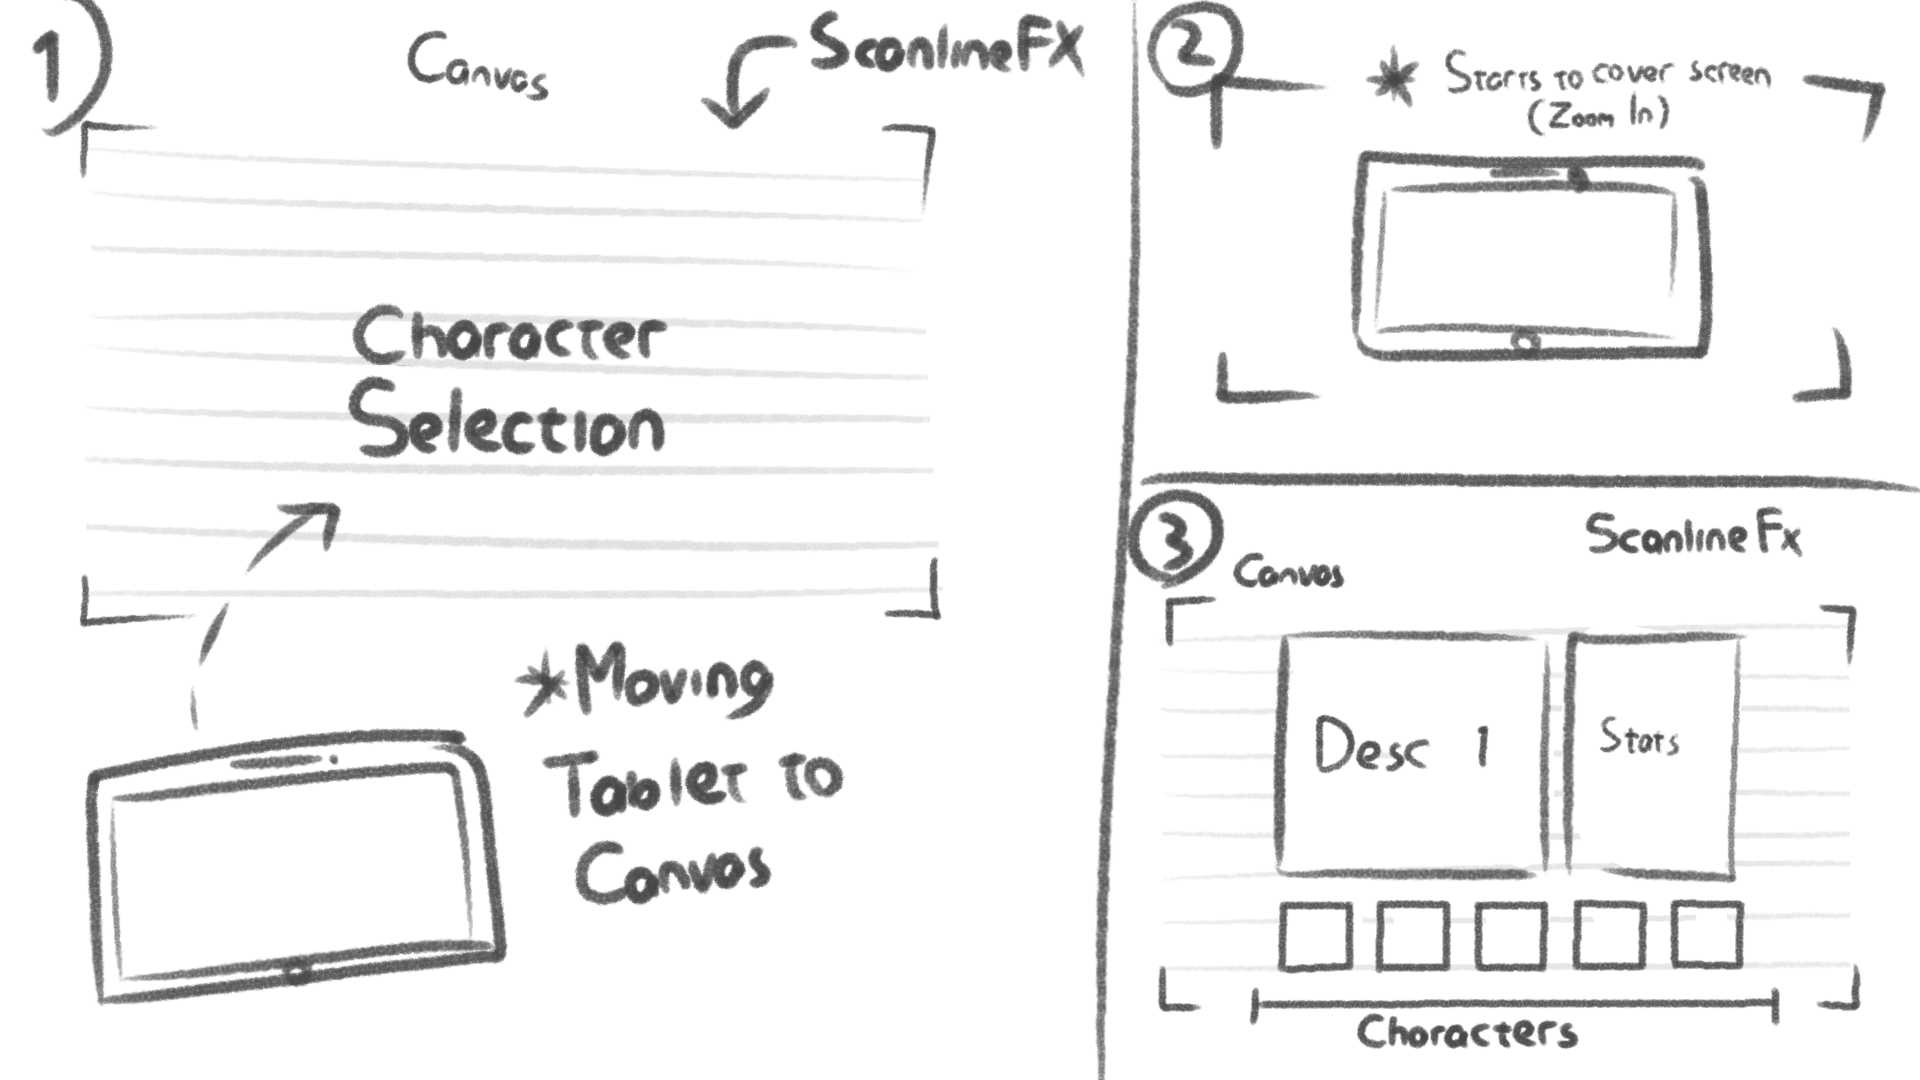 1
Canvas
ScanlineFX
Character
Selection
*Moving
Tablet to
Canvas
2
* Starts to cover screen
(Zoom In)
3
Canvas
ScanlineFx
Desc 1
Stats
Characters